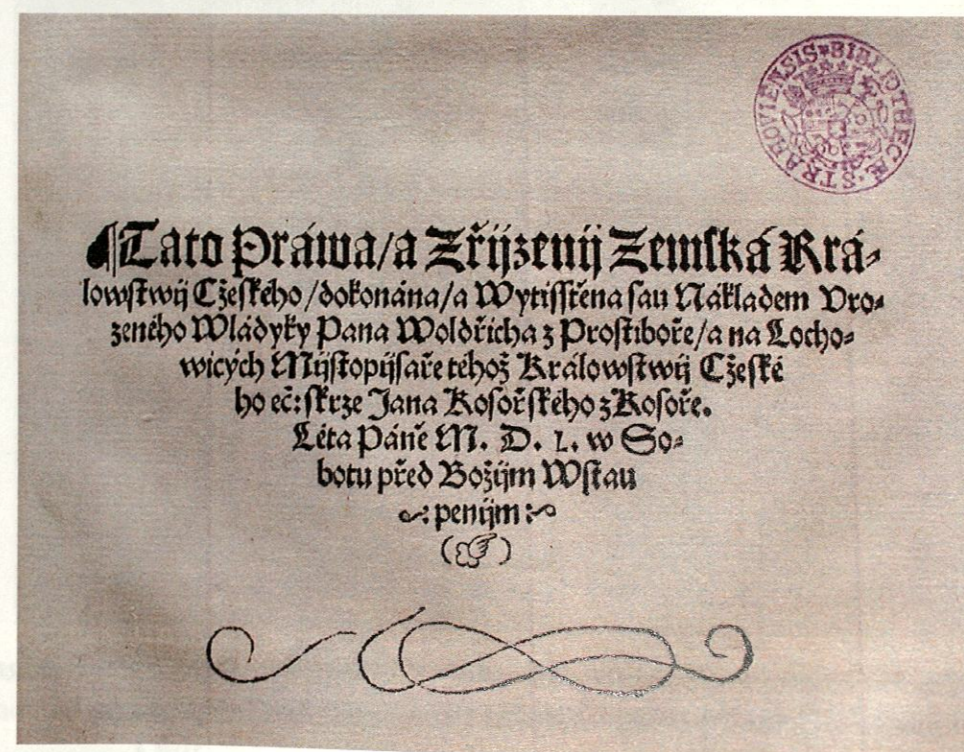 STRAHOVIENSIS * BIBLIOTHECÆ
Tato Práwa/a Zřijzenij Zemſká Krá⸗
lowſtwij Cžeſkého/dokonána/a Wytiſſtěna ſau Nákladem Vro⸗
zeného Wládyky Pana Woldřicha z Proſtiboře/a na Locho⸗
wicých Mijſtopijſaře téhož Králowſtwij Cžeſké
ho ec̃: ſkrze Jana Koſořſkého z Koſoře.
Léta Páně M. D. L. w So⸗
botu před Božijm Wſtau
penijm